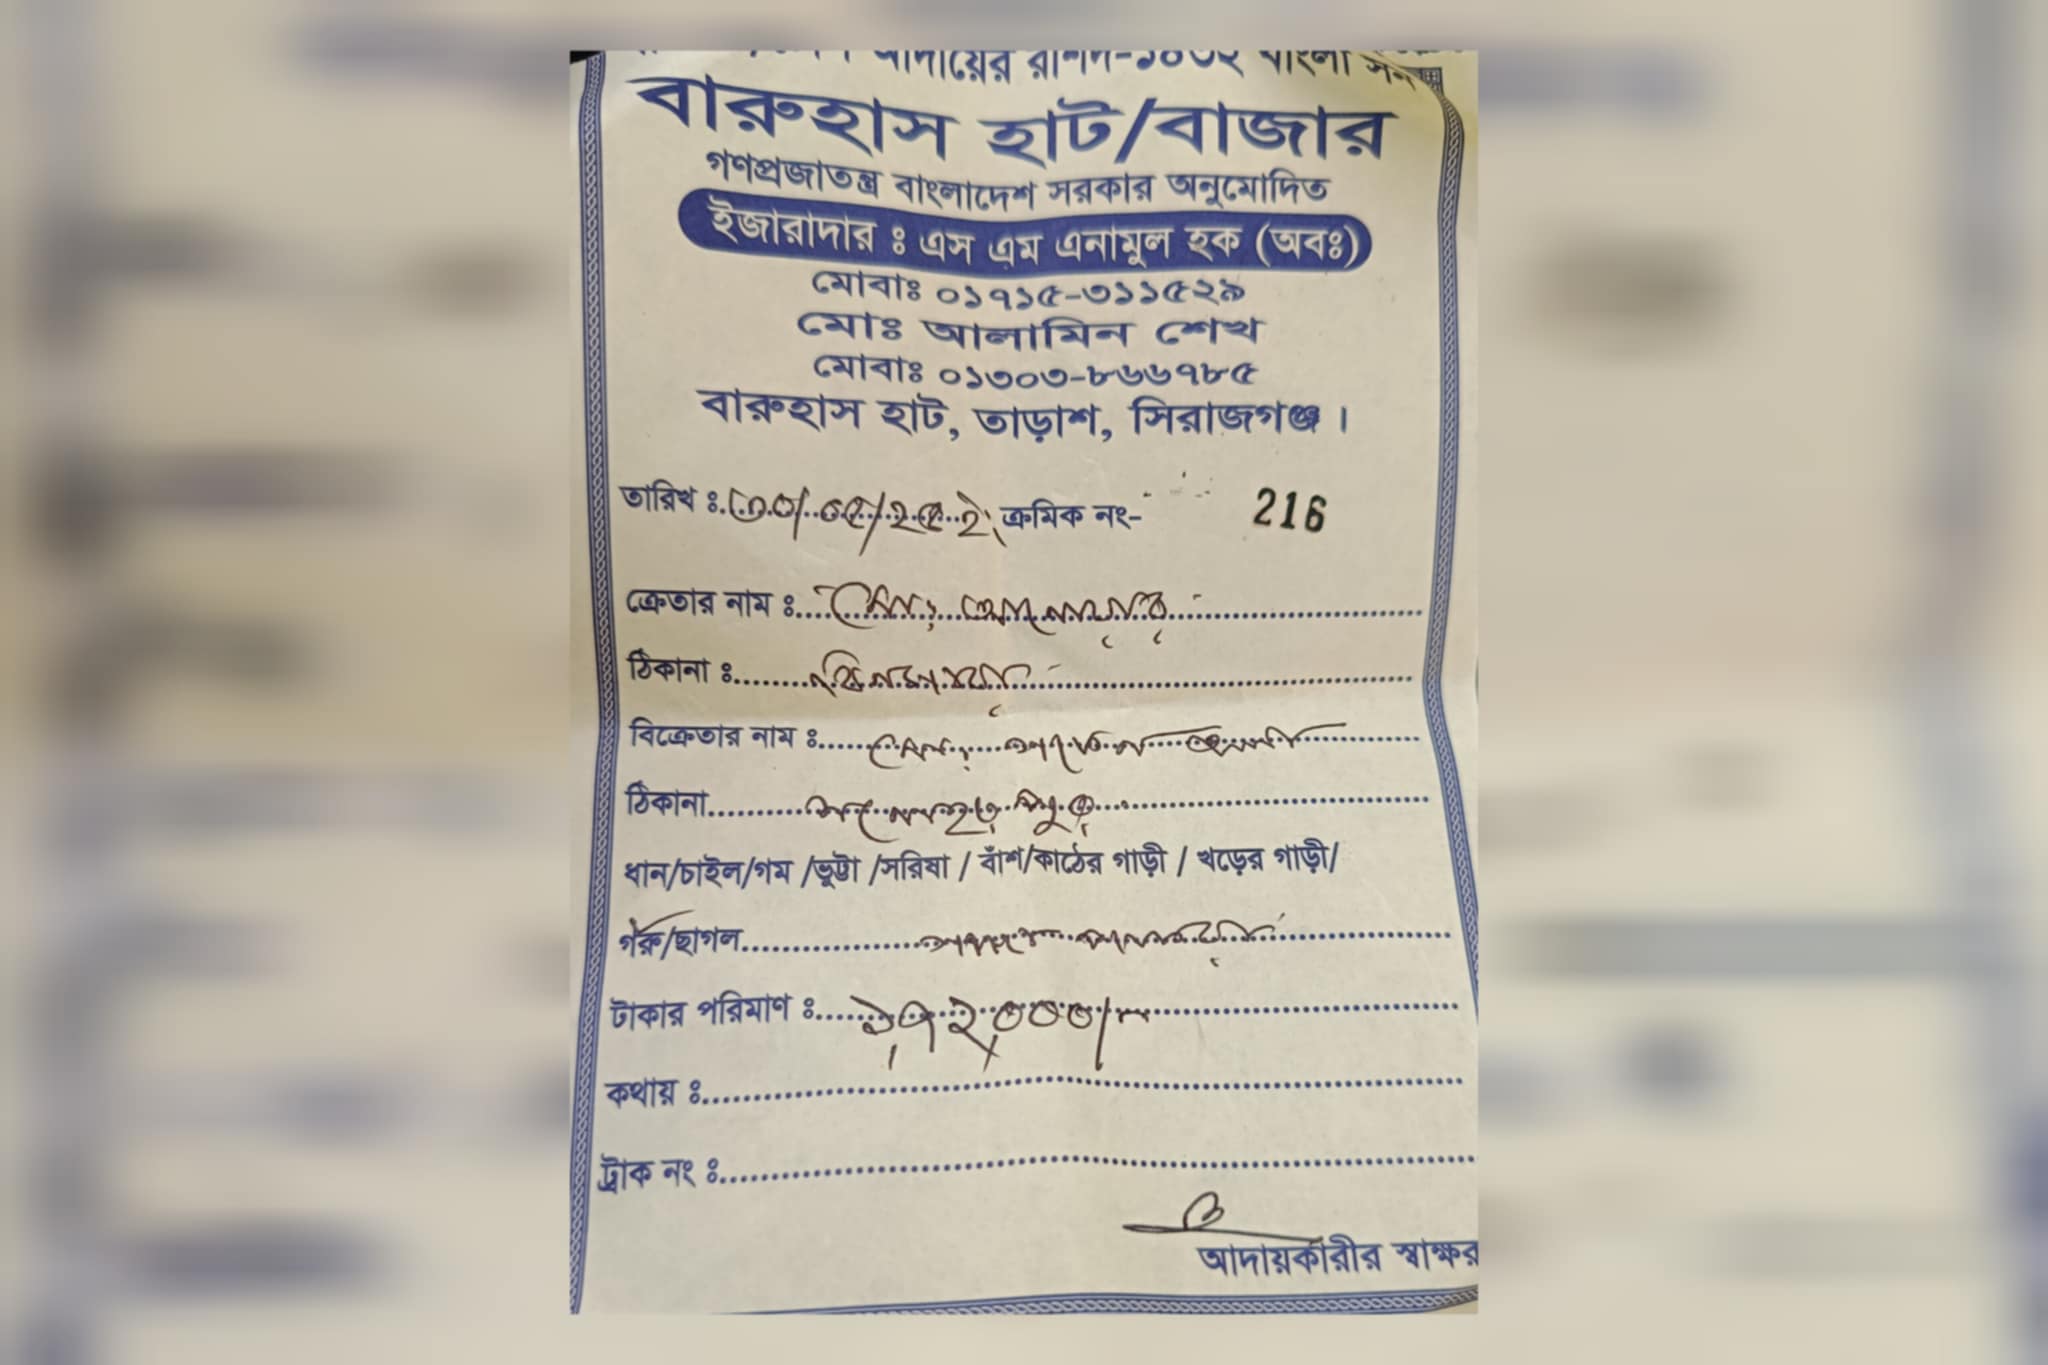 আদায়ের রশিদ-১৪৩২ বাংলা সন
বারুহাস হাট/বাজার
গণপ্রজাতন্ত্র বাংলাদেশ সরকার অনুমোদিত
ইজারাদার ঃ এস এম এনামুল হক (অবঃ)
মোবাঃ ০১৭১৫-৩১১৫২৯
মোঃ আলামিন শেখ
মোবাঃ ০১৩০৩-৮৬৬৭৮৫
বারুহাস হাট, তাড়াশ, সিরাজগঞ্জ।
তারিখ ঃ ৩০/০৫/২৫ ইং ক্রমিক নং- 216
ক্রেতার নাম ঃ মোঃ আনোয়ার
ঠিকানা ঃ
বিক্রেতার নাম ঃ মোঃ
ঠিকানা
ধান/চাইল/গম /ভুট্টা /সরিষা / বাঁশ/কাঠের গাড়ী / খড়ের গাড়ী/
গরু/ছাগল
টাকার পরিমাণ ঃ ১,৭২,০০০/-
কথায় ঃ
ট্রাক নং ঃ
আদায়কারীর স্বাক্ষর